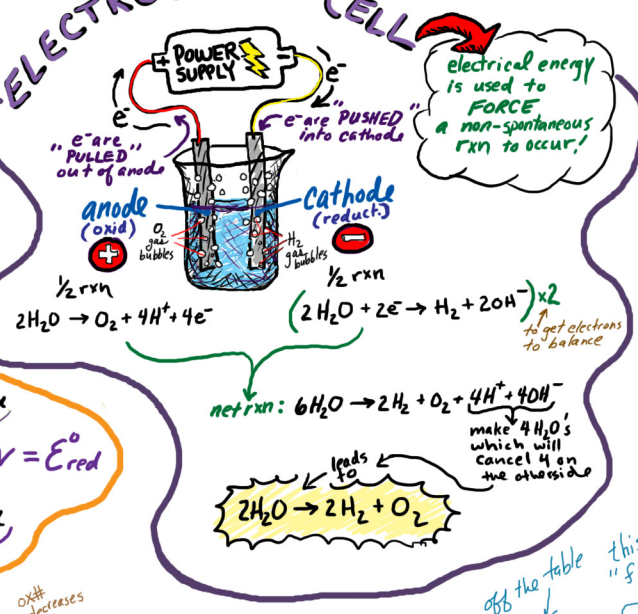 ELECTRO
CELL
POWER
SUPPLY
+
−
e⁻
e⁻
electrical energy
is used to
FORCE
a non-spontaneous
rxn to occur!
"e⁻ are
PULLED"
out of anode
e⁻ are "PUSHED"
into cathode
anode
(oxid)
+
cathode
(reduct.)
−
O₂
gas
bubbles
H₂
gas
bubbles
½ rxn
2H₂O → O₂ + 4H⁺ + 4e⁻
½ rxn
(2H₂O + 2e⁻ → H₂ + 2OH⁻) x2
to get electrons
to balance
net rxn: 6H₂O → 2H₂ + O₂ + 4H⁺ + 4OH⁻
make 4H₂O's
which will
cancel 4 on
the otherside
leads
to
2H₂O → 2H₂ + O₂
= Ɛ°red
ox#
decreases
off the table